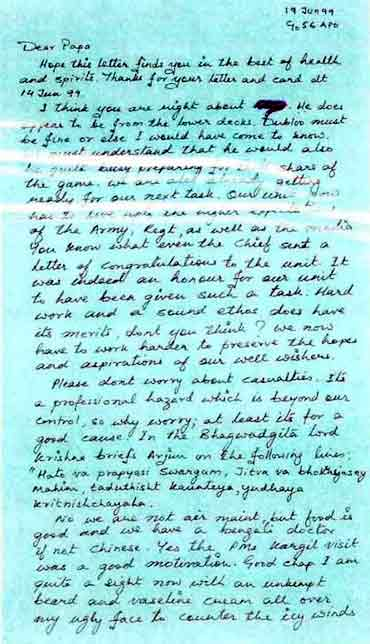 19 Jun 99
C/o 56 APO
Dear Papa
Hope this letter finds you in the best of health
and spirits. Thanks for your letter and card dt
14 Jun 99.
I think you are right about . He does
appear to be from the lower decks. must
be fine or else I would have come to know.
must understand that he would also
be quite busy preparing for share of
the game. We are also getting
ready for our next task. Our unit now
has to live upto the higher
of the Army, Regt, as well as the media
You know what even the Chief sent a
letter of congratulations to the unit. It
was indeed an honour for our unit
to have been given such a task. Hard
work and a sound ethos does have
its merits, dont you think? We now
have to work harder to preserve the hopes
and aspirations of our well wishers.
Please dont worry about casualties. Its
a professional hazard which is beyond our
control, so why worry; at least its for a
good cause. In the Bhagwadgita Lord
Krishna briefs Arjun on the following lines:
"Hato va prapyasi Swargam, Jitva va
Mahim, taduthisht Kaunteya, yudhaya
kritnishchayaha.
No we are not air maint, but food is
good and we have a bengali doctor
if not Chinese. Yes the PMs Kargil visit
was a good motivation. Good chap I am
quite a sight now with an unkempt
beard and vaseline cream all over
my ugly face to counter the icy winds